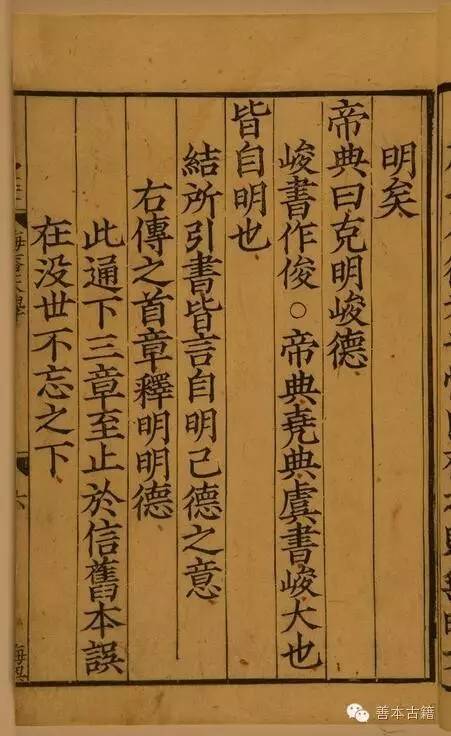 明矣
帝典曰克明峻德
峻書作俊○帝典堯典虞書峻大也
皆自明也
結所引書皆言自明己德之意
右傳之首章釋明明德
此通下三章至止於信舊本誤
在没世不忘之下
六
善本古籍